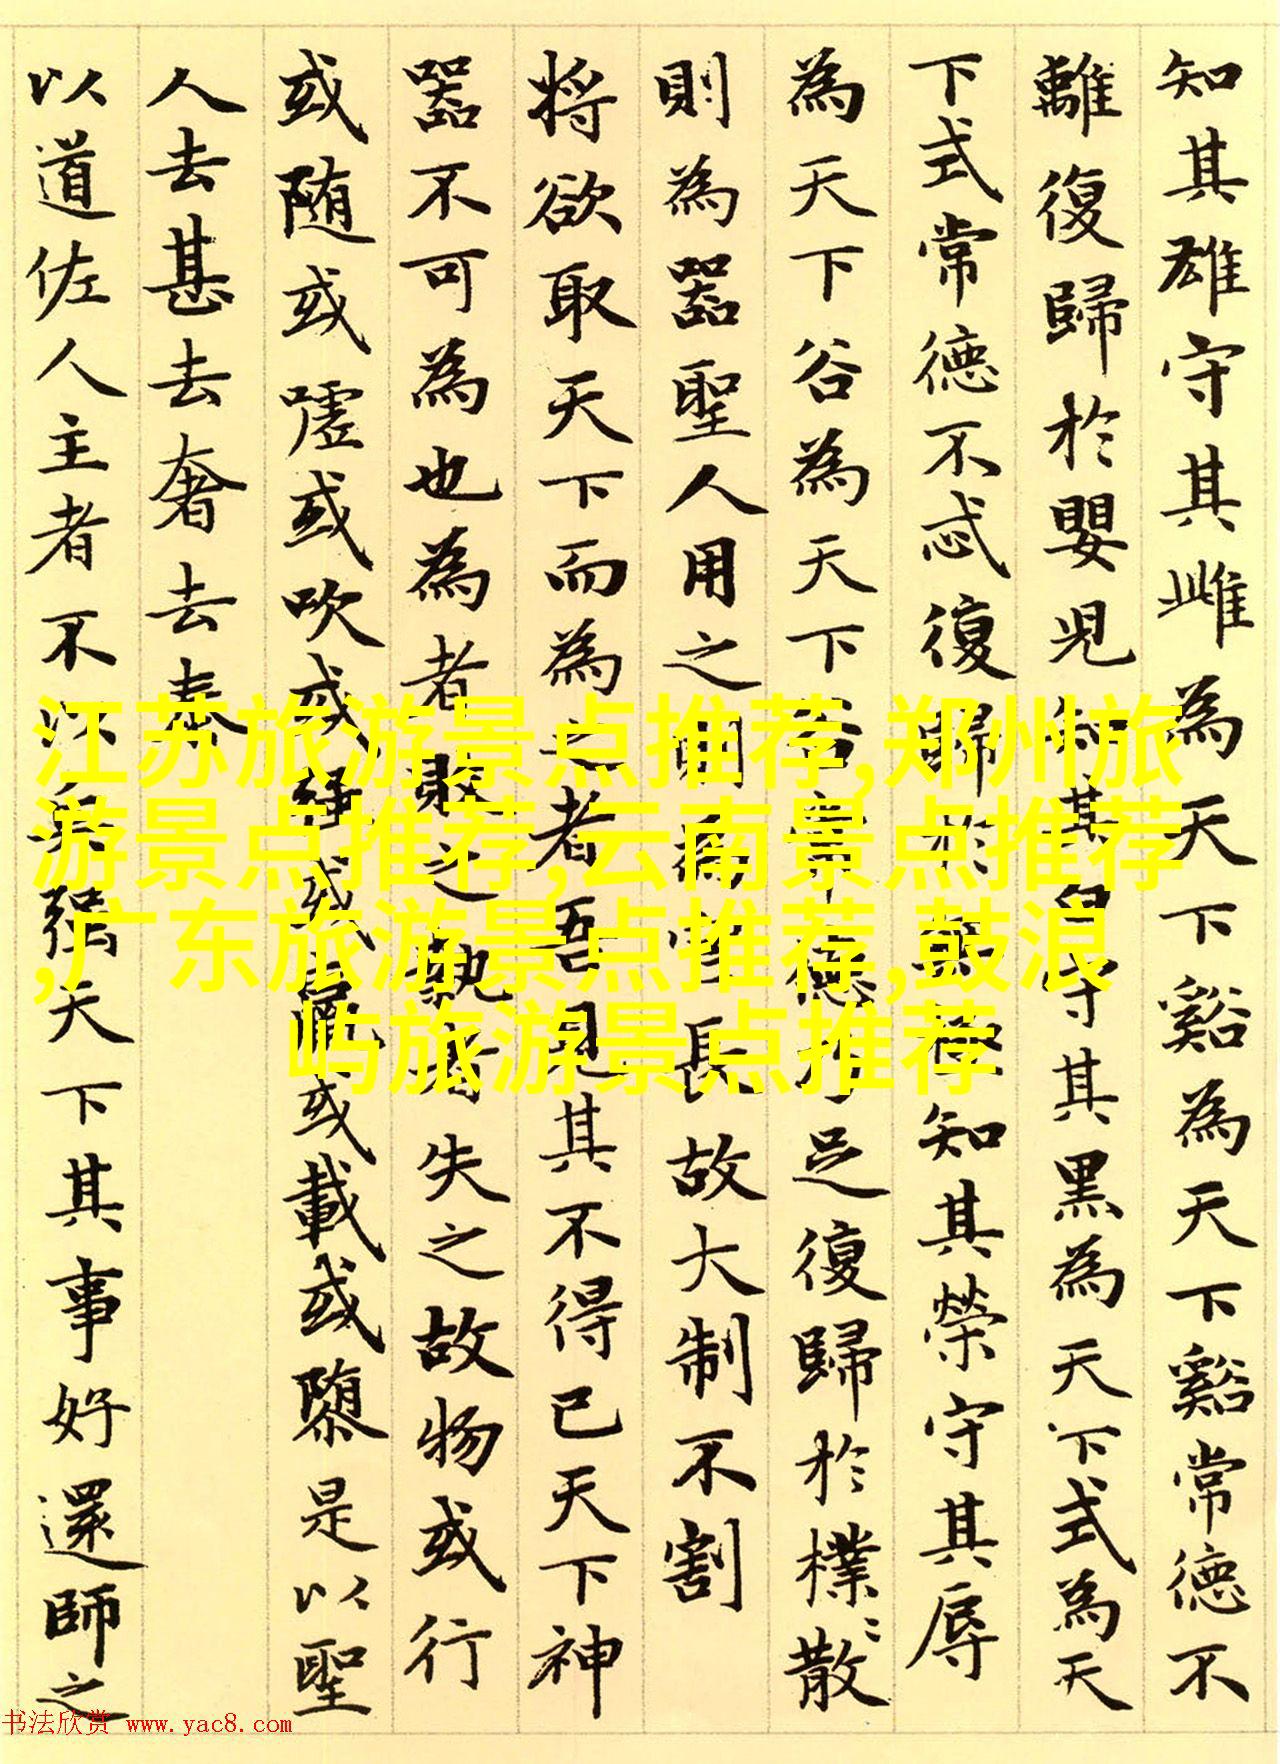 知其雄守其雌為天下谿為天下谿常德不
離復歸於嬰兒知其白守其黑為天下式為天
下式常德不忒復歸於無極知其榮守其辱
為天下谷為天下谷常德乃足復歸於樸〻散
則為器聖人用之則為官長故大制不割
将欲取天下而為之者吾見其不得已天下神
器不可為也為者敗之執者失之故物或行
或随或嘘或吹或强或羸或載或隳是以聖
人去甚去奢去泰
以道佐人主者不以兵强天下其事好還師之
江苏旅游景点推荐,郑州旅
游景点推荐,云南景点推荐
,广东旅游景点推荐,鼓浪
屿旅游景点推荐
书法欣赏 www.yac8.com